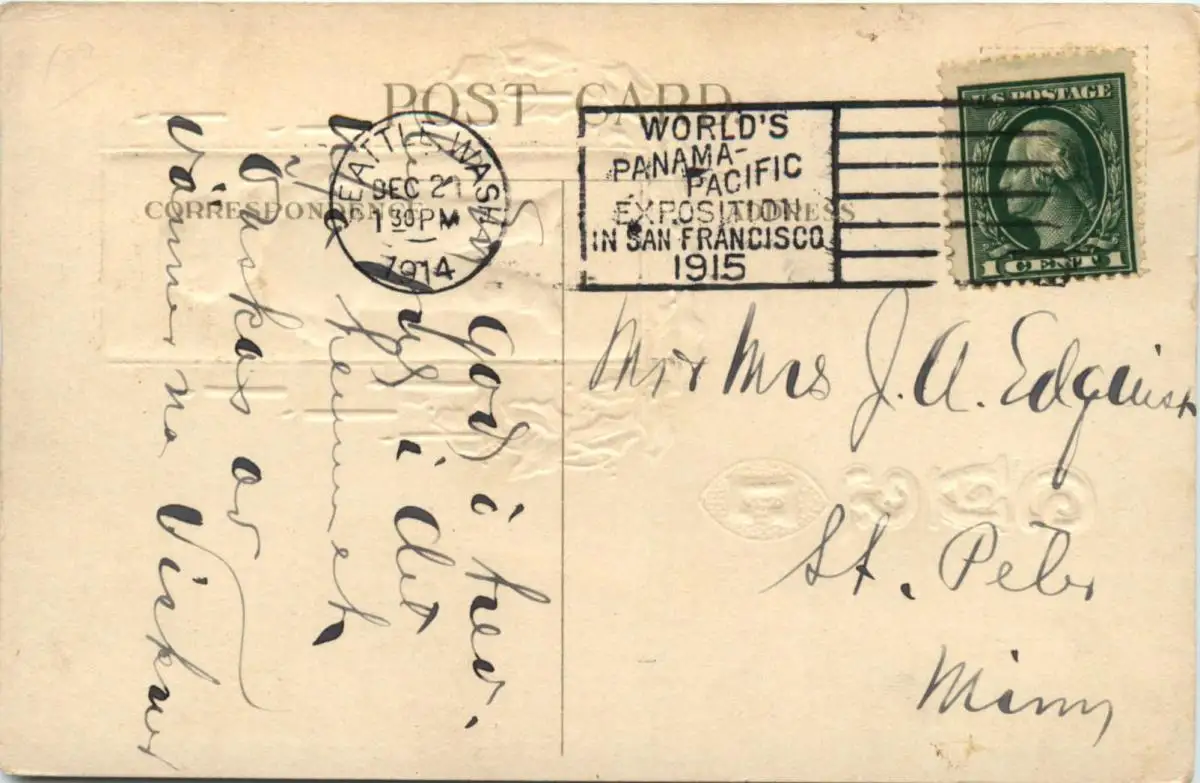 POST CARD
CORRESPONDENCE
ADDRESS
SEATTLE, WASH.
DEC 21
1 30 PM
1914
WORLD'S
PANAMA-
PACIFIC
EXPOSITION
IN SAN FRANCISCO
1915
U.S. POSTAGE
1 CENT 1
God trev.
jul i det
Nya hemmet
Önskas av
vännerna Vickner
Mr & Mrs J. A. Edquist
St. Peter
Minn